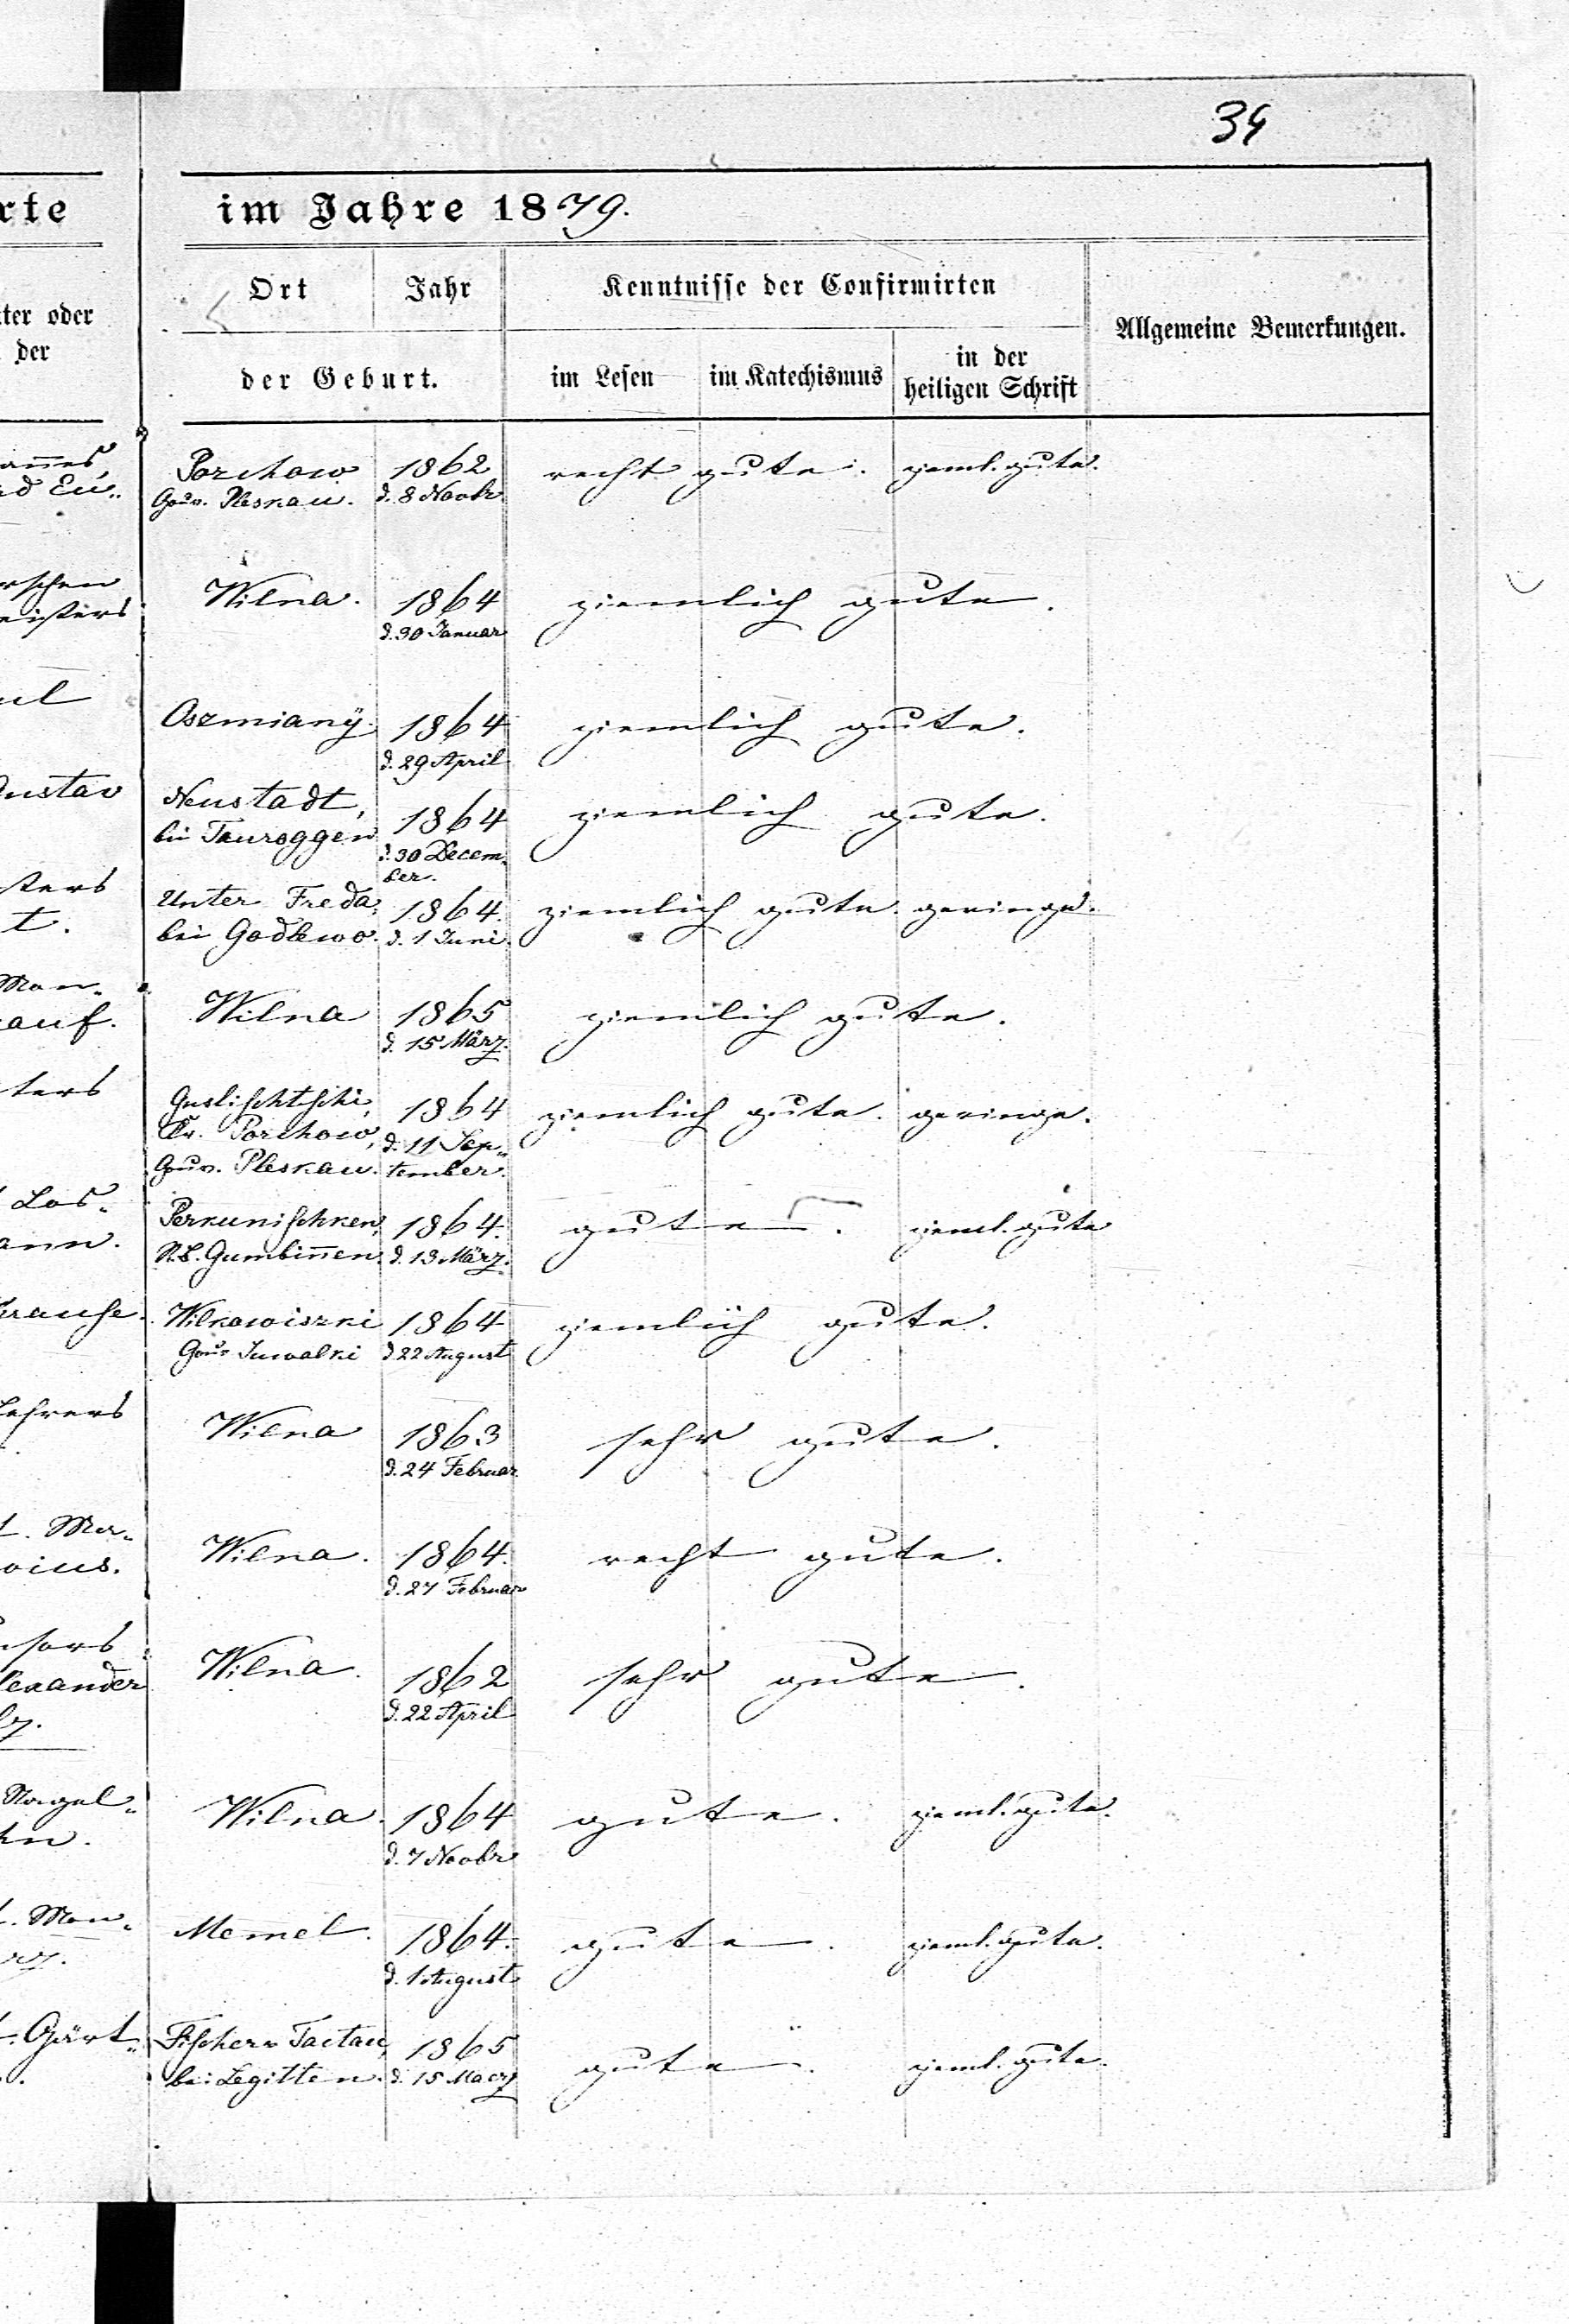 34
rte im Jahre 1879.
Ort Jahr Kenntnisse der Confirmirten Allgemeine Bemerkungen.
ter oder
der
der Geburt. im Lesen im Katechismus in der heiligen Schrift
Porchow 1862 recht gute. zieml. gute.
Gouv. Pleskau. d. 8 Novbr
Wilna. 1864 ziemlich gute.
d. 30 Januar
Oszmianÿ. 1864 ziemlich gute.
d. 29 April
Gustav Neustadt, 1864 ziemlich gute.
bei Tauroggen d. 30 Decem-
ber.
Unter Freda, 1864. ziemlich gute. geringe.
t. bei Godlewo. d. 1 Juni.
Wilna 1865 ziemlich gute.
auf. d. 15 März.
Guslischtschi, 1864 ziemlich gute. geringe.
Kr. Porchow, d. 11 Sep-
Gouv. Pleskau. tember.
Perkunischken, 1864. gute. zieml. gute
ann. R.B. Gumbinnen. d. 13 März.
Krause. Wilkowiszki 1864 ziemlich gute.
Gouv Suwalki d. 22 August
Lehrers Wilna 1863 sehr gute.
d. 24 Februar.
Wilna. 1864. recht gute.
d. 27 Februar
Wilna. 1862 sehr gute.
lexander d. 22 April
Nagel- Wilna. 1864 gute. zieml. gute.
hn. d. 7 Novbr
Memel. 1864. gute. zieml. gute.
d. 1 August
Gärt- Fischern Tactau, 1865 gute. zieml. gute.
bei Legitten. d. 15 Maerz